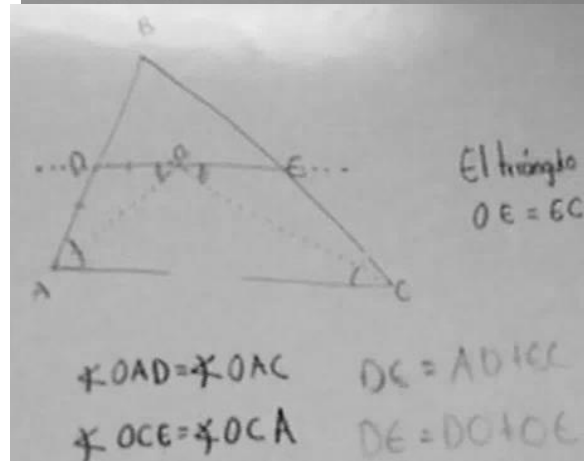 B
D O E
A C
El triángulo
OE = EC
∢OAD=∢OAC
∢OCE=∢OCA
DE = AD+EC
DE = DO+OE